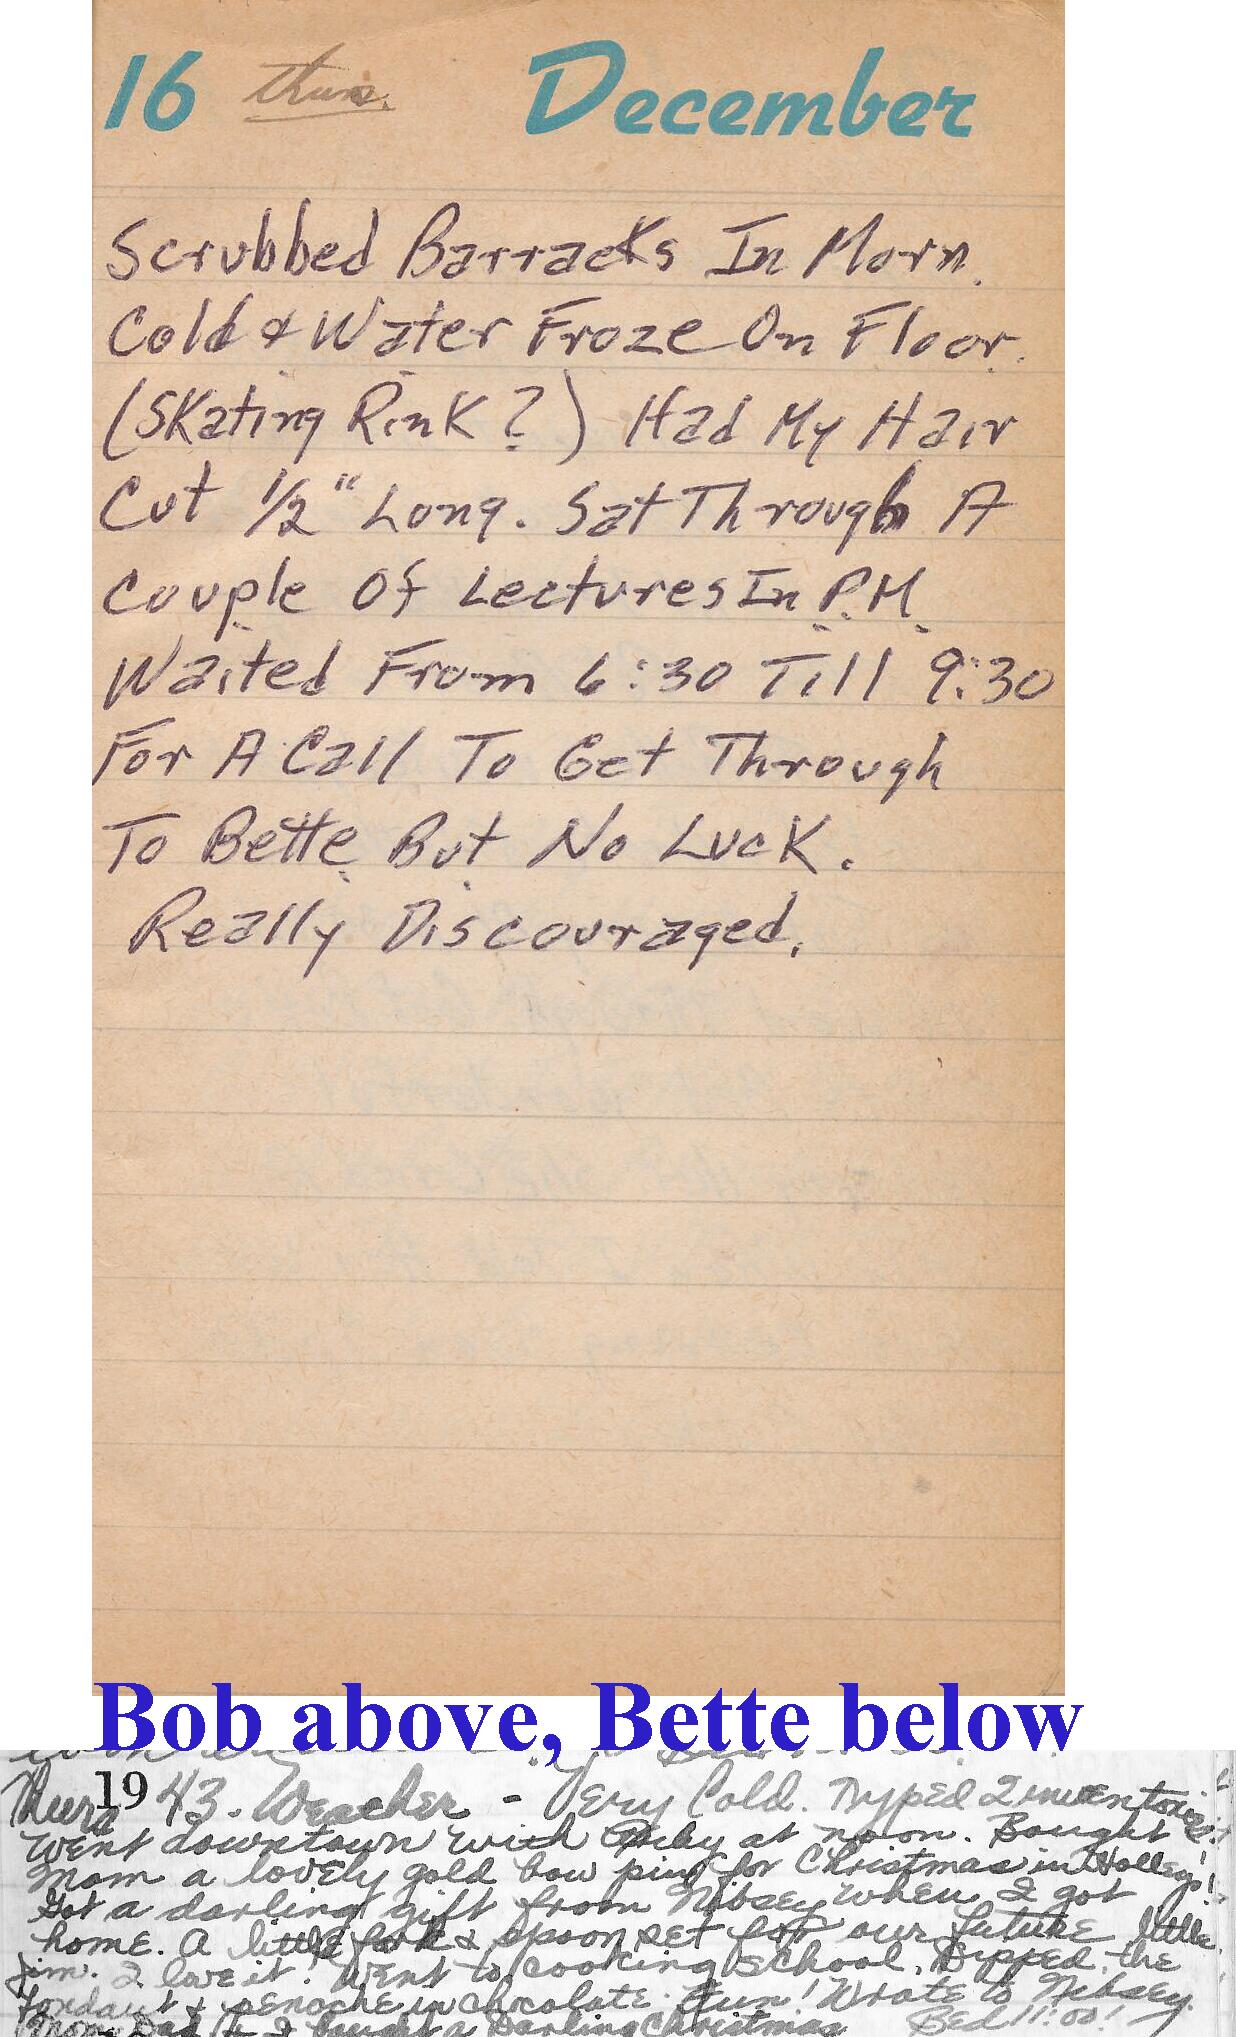 16 thurs. December
Scrubbed Barracks In Morn.
Cold & Water Froze On Floor.
(Skating Rink?) Had My Hair
Cut 1/2" Long. Sat Through A
Couple Of Lectures In P.M.
Waited From 6:30 Till 9:30
For A Call To Get Through
To Bette But No Luck.
Really Discouraged.
Bob above, Bette below
Thurs 1943. Weather - Very Cold. Typed 2 inventories.
Went downtown with at noon. Bought
Mom a lovely gold bow pin for Christmas in
Got a darling gift from Nibsey when I got
home. A little fork & spoon set for our future little
Jim. I love it. Went to cooking school. Dipped the
fondant & penoche in chocolate. Fun! Wrote to Nibsey.
Mom, Dad & I bought a Darling Christmas Bed 11:00!